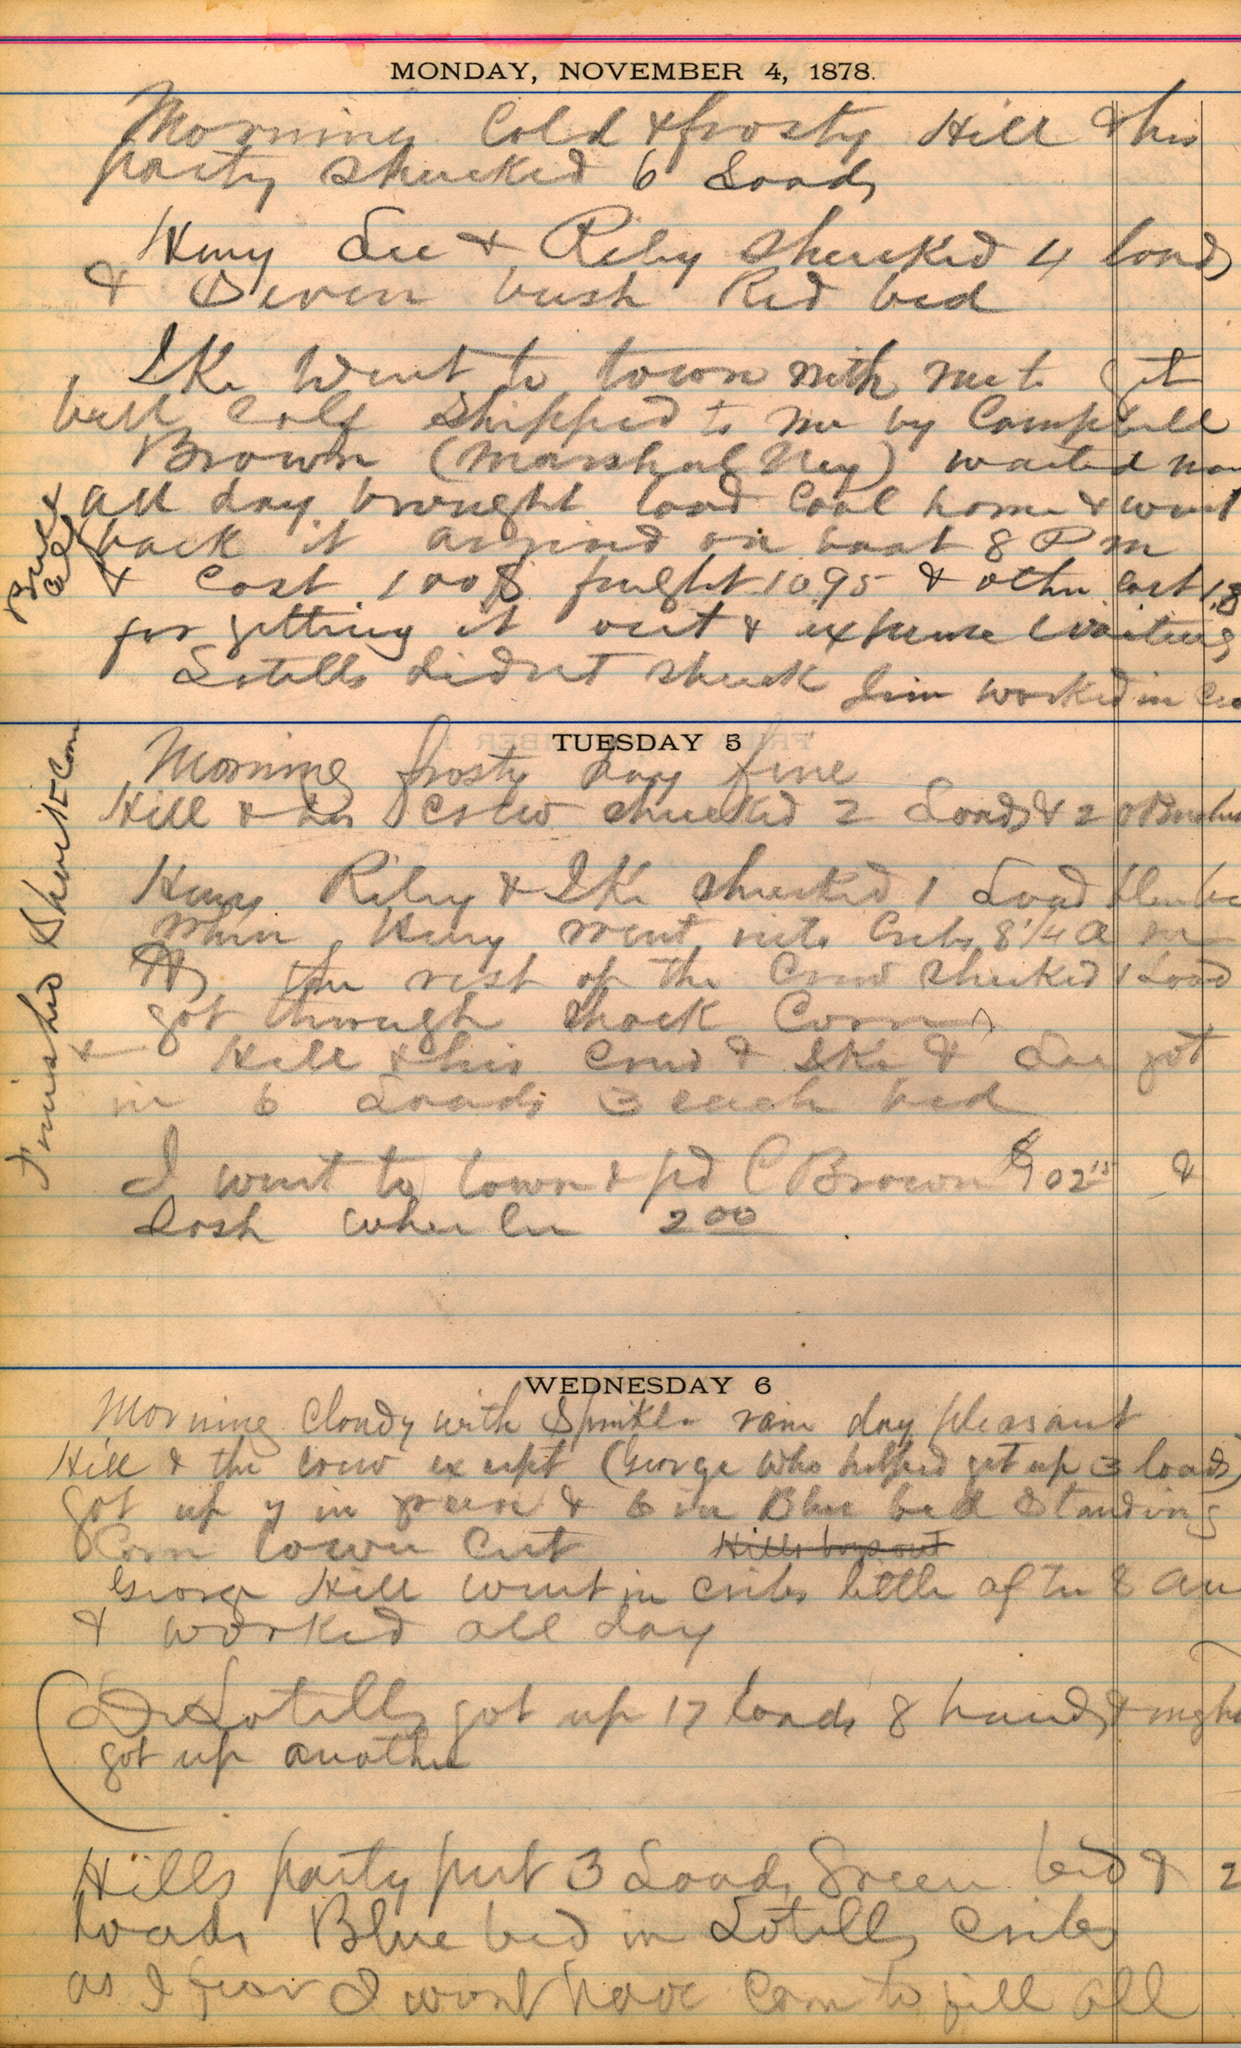 MONDAY, NOVEMBER 4, 1878.
Morning Cold & frosty Hill & his
party shucked 6 Loads
Henry Lee & Riley shucked 4 loads
& Seven bush Red bed
IKe Went to town with me to get
bull Calf Shipped to me by Campbell
Brown (Marshal Ney) waited
all day brought load Coal home & went
back it arrived on boat 8 P m
Bull Calf
& Cost 100$ freight 10.95 & other cost 1.8
for getting it out & expense waiting
Lotells didnt shuck Jim worked in
TUESDAY 5
Morning frosty day fine
Hill & his crew shucked 2 Loads & 20 Bushs
Finished Shock Corn
Henry Riley & IKe shucked 1 Load
When Henry went into Cribs 8 1/4 a m
the rest of the Crew shucked 1 Load
got through Shock Corn
& Hill & his Crew & IKe & Lee got
in 6 Loads 3 each bed
I went to town & pd C Brown $102 &
2 00
WEDNESDAY 6
Morning Cloudy with Sprinkle rain day pleasant
Hill & the crew except (George who helped get up 3 loads)
got up 7 in green & 6 in Blue bed Standing
Corn Cut Hills
George Hill went in cribs little after 8 am
& worked all day
Lotells got up 17 loads 8 hands &
got up another
Hills party put 3 Loads Green bed & 2
Loads Blue bed in Lotells Cribs
as I fear I wont have Corn to fill all